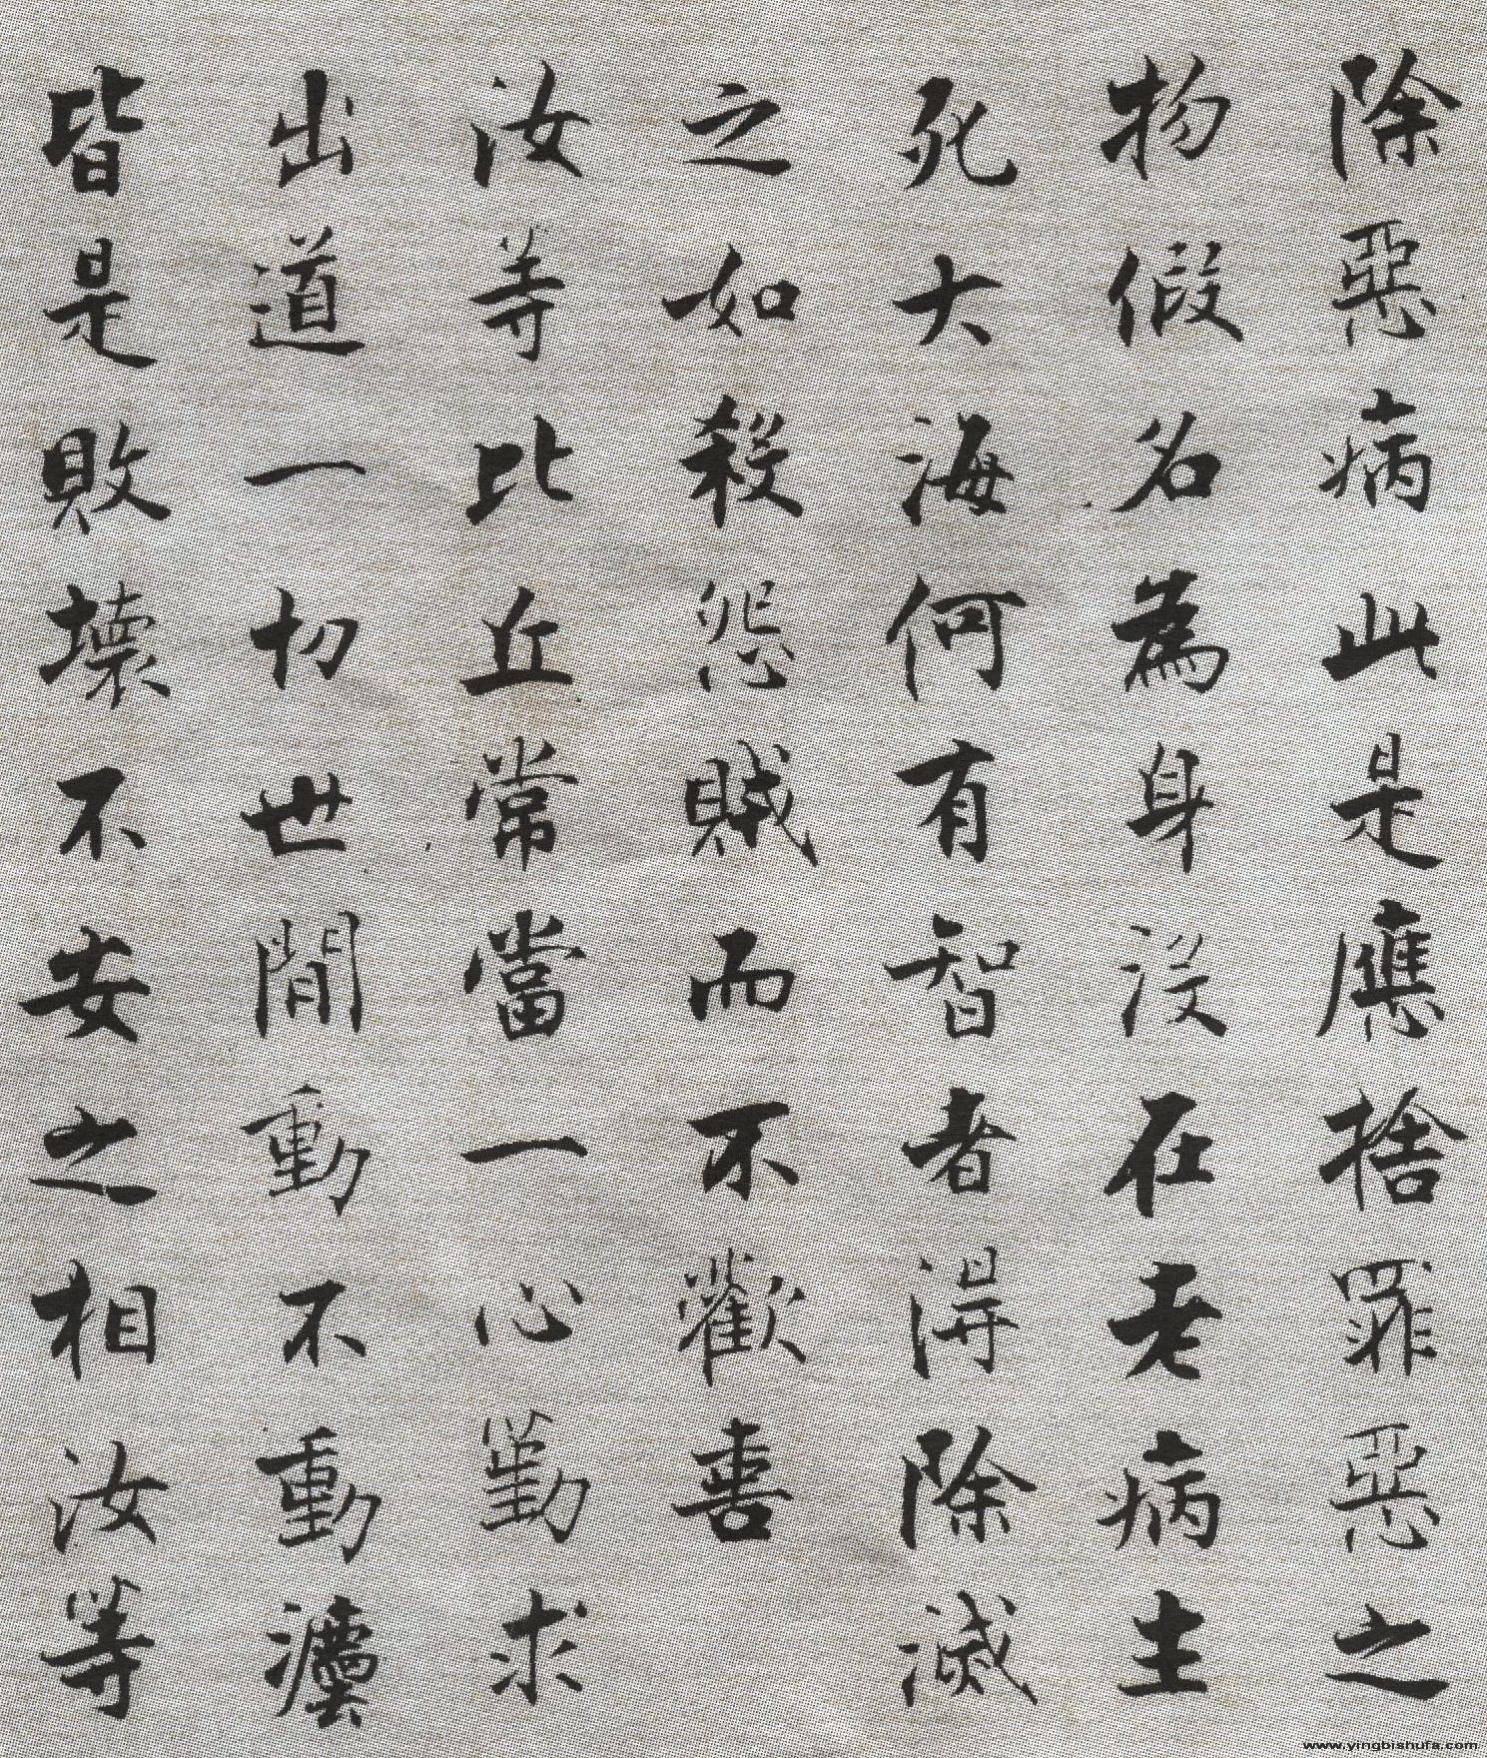 除惡病此是應捨罪惡之
物假名為身没在老病生
死大海何有智者得除滅
之如殺怨賊而不歡喜
汝等比丘常當一心勤求
出道一切世間動不動灋
皆是敗壞不安之相汝等
www.yingbishufa.com